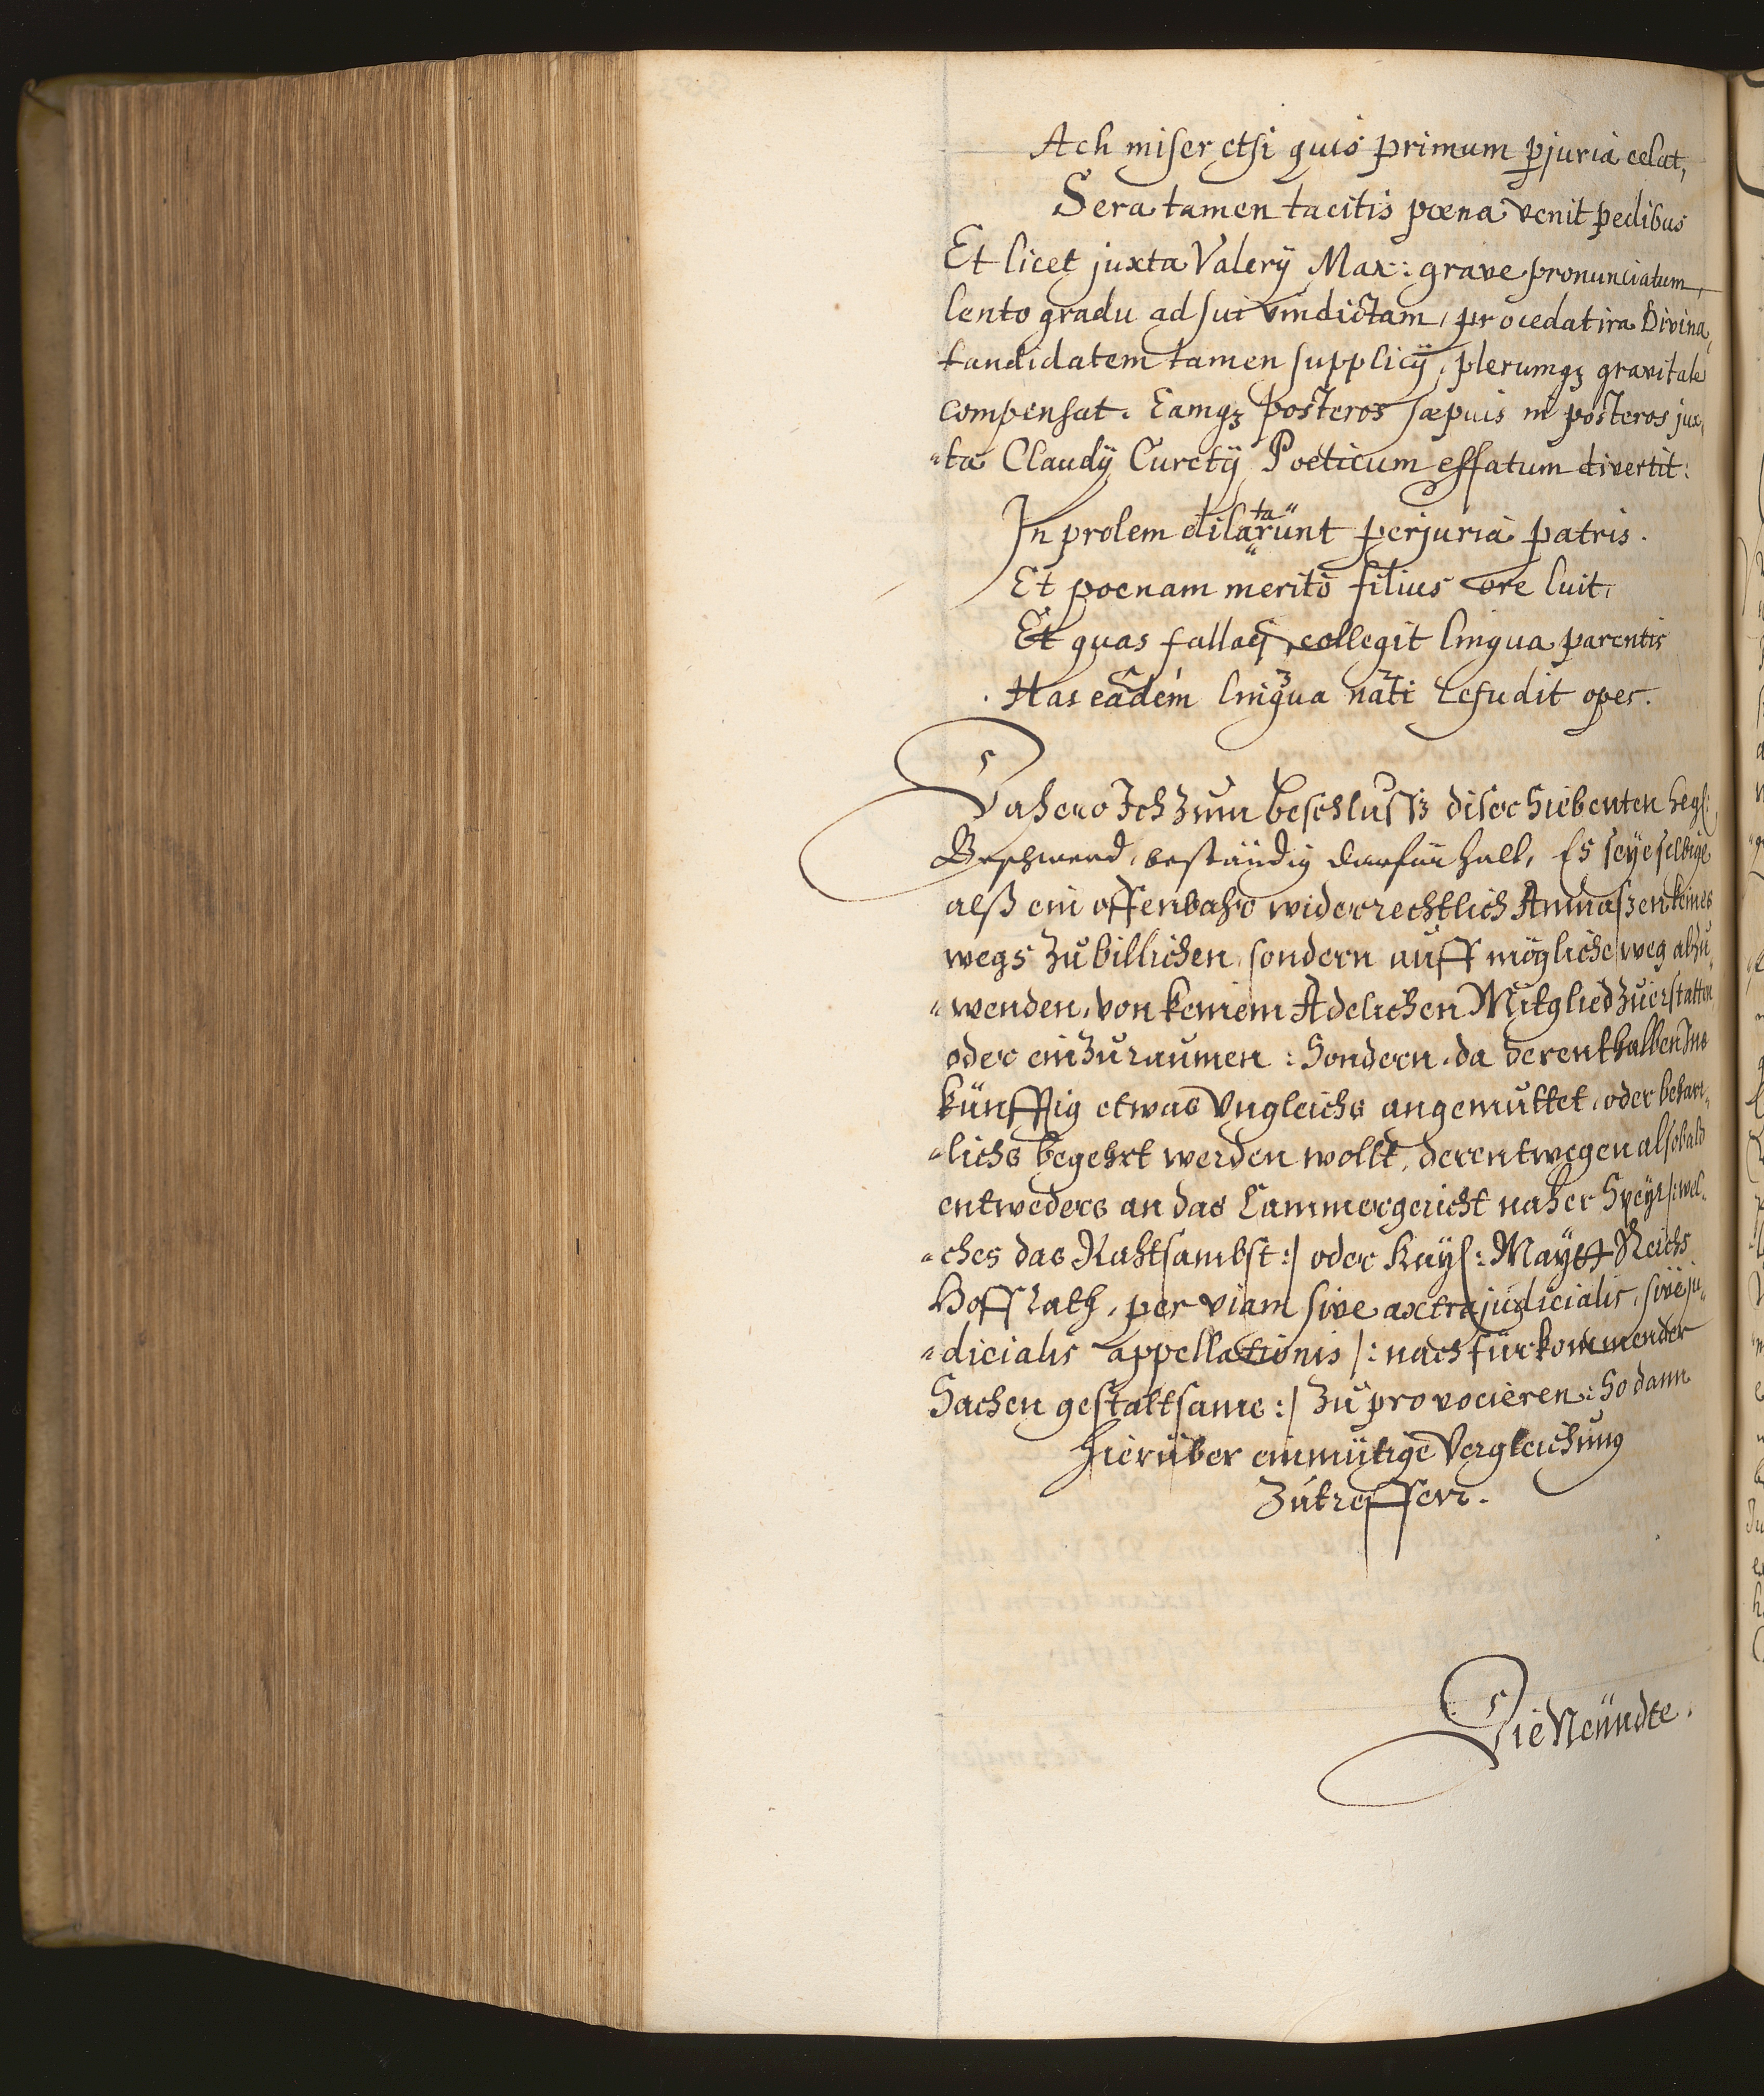 Ach miser etsi quis primum pjuria celat,
Sera tamen tacitis poena venit pedibus
Et licet juxta Valerÿ Max: grave pronunciatum,
lento gradu ad sui vindictam, procedat ira Divina,
tandidatem tamen supplicÿ, plerumqz gravitate
compensat. Eamqz posteros saepuis in posteros jux,
"ta Claudÿ Curetÿ Poeticum effatum divertit:
In prolem dilatarunt perjuria patris.
Et poenam meritò filius ore luit,
Et quas fallaci collegit lingua parentis
Has eadem lingua nati refudit opes.
Dahero Ich zum beschlussz diser Siebenten hegl:
Beschwerd, beständig darfür halt, Es seÿe selbige
alß ein offenbahr widerrechtlich Anmaszen keines
wegs zu billichen, sondern auff mögliche weg abzu,
"wenden, von keinem Adelichen Mitglied zuerstatten
oder einzuraumen: Sondern, da derenthalben Ins
künfftig etwas Ungleichs angemuttet, oder behart,
"lichs begehrt werden wollt, derentwegen alsobald
entweders an das Cammergericht naher Speÿr /: wel,
"ches das Rahtsambst :/ oder Kaÿs: Maÿtt Reichs
Hoff Rath, per viam sive axtrajudicialis, sive ju,
"dicialis appellationis /: nach fürkommender
Sachen gestaltsame :/ zu provocieren: So dann
hierüber einmütige Vergleichung
zutreffen.
Die Neündte.